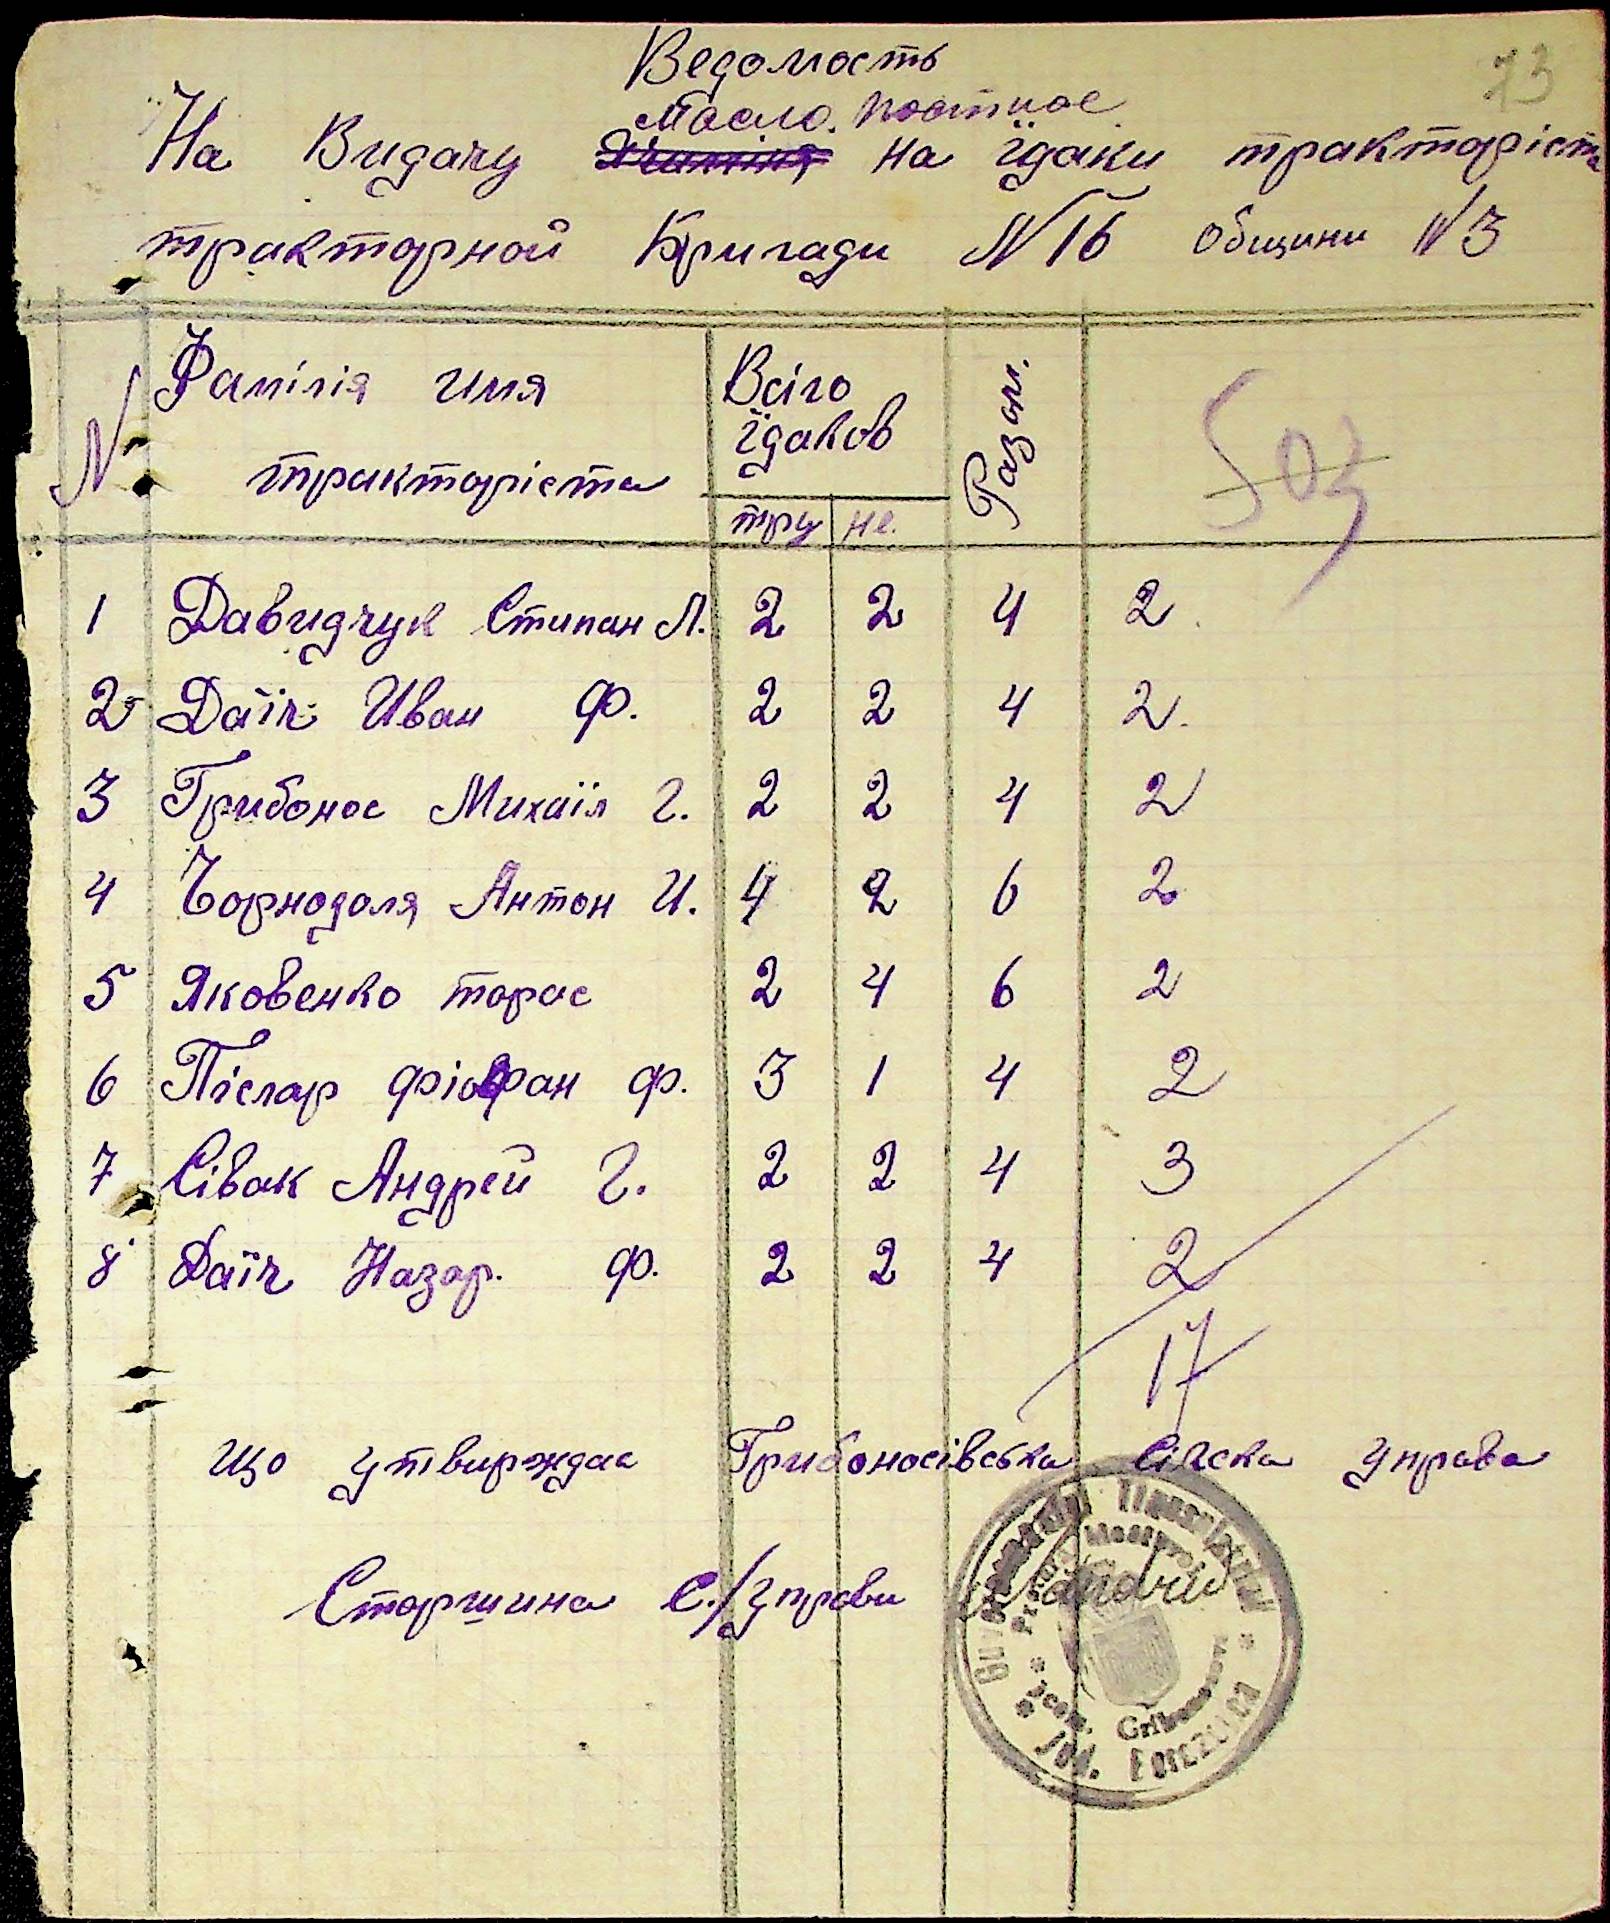 73
Ведомость
масло постное
На Видачу на їдаки тракторіста
тракторной Бригади N 16 общини N 3
N Фамілія имя тракторіста Всіго їдаков Разом.
тру не.
503
1 Давидчук Стипан Л. 2 2 4 2
2 Даїч Иван Ф. 2 2 4 2.
3 Грибонос Михаїл Г. 2 2 4 2
4 Чорнодоля Антон И. 4 2 6 2
5 Яковенко торас 2 4 6 2
6 Післар Ф. 3 1 4 2
7 Сівак Андрей Г. 2 2 4 3
8 Даїч Назар. Ф. 2 2 4 2
17
Що утвирждає Грибоносівська Сільска управа
Старшина С./управи
Guvernământul Transnistriei
Jud.
Com. Gribonosova